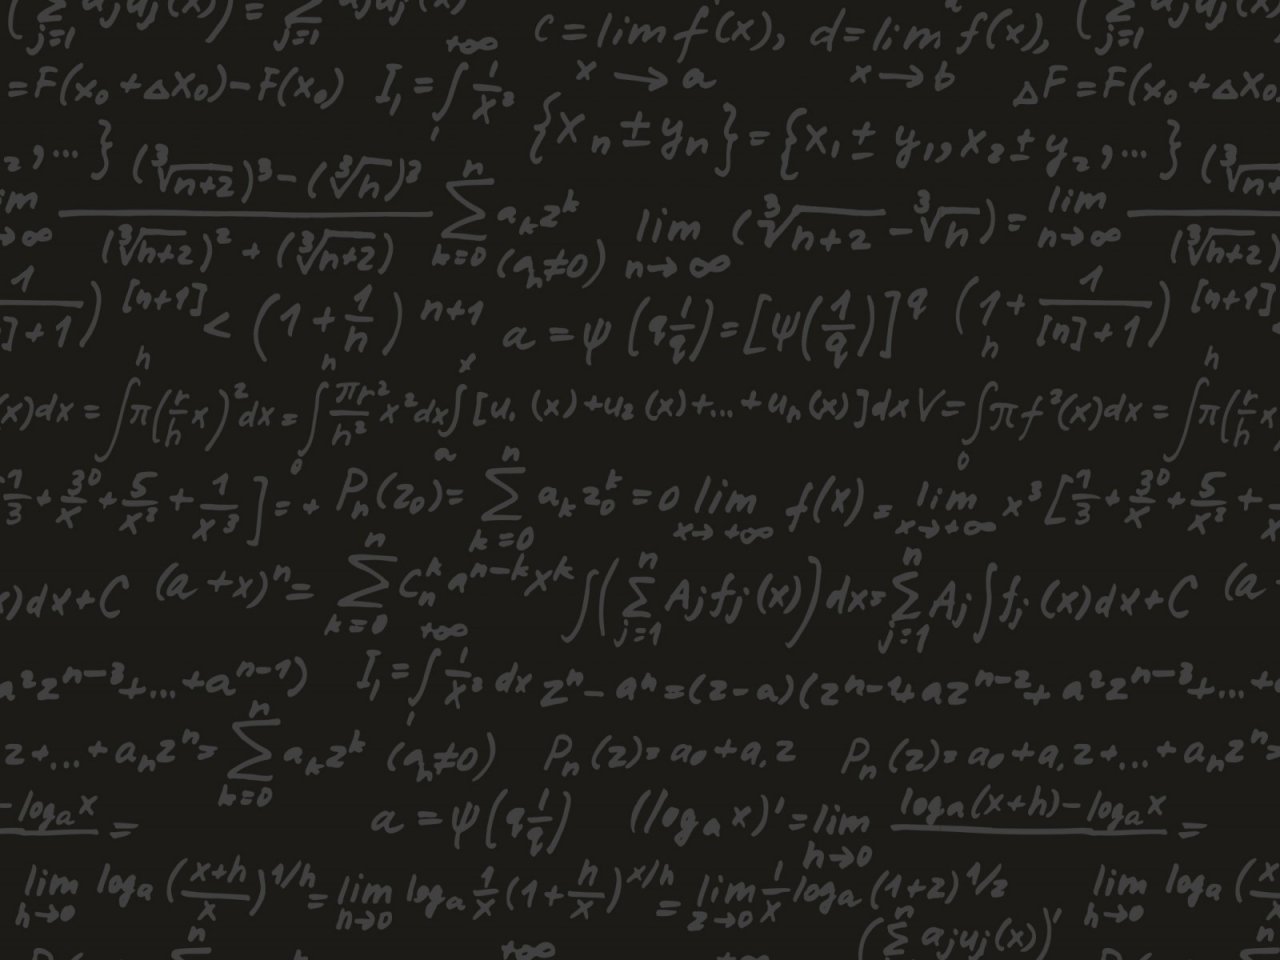 (∑ⱼ₌₁ aⱼuⱼ(x))' = ∑ⱼ₌₁ aⱼuⱼ'(x)
c = lim x→a f(x), d = lim x→b f(x), (∑ⱼ₌₁ aⱼuⱼ(x)
= F(x₀ + ΔX₀) − F(x₀) I₁ = ∫₁^+∞ 1/x² ΔF = F(x₀ + ΔX₀
₂, ... } {xₙ ± yₙ} = {x₁ ± y₁, x₂ ± y₂, ... }
lim →∞ ((∛n+2)³ − (∛n)²) / ((∛n+2)² + (∛n+2)) ∑ₖ₌₀ⁿ aₖzᵏ (aₙ≠0) lim n→∞ (∛n+2 − ∛n) = lim n→∞ (∛n+ / (∛n+2)
1 / ] + 1) [n+1] < (1 + 1/n) n+1 a = ψ(q 1/q) = [ψ(1/q)]^q (1 + 1 / [n] + 1) [n+1]
(x)dx = ∫ₒʰ π(r/h x)² dx = ∫₀ʰ πr²/h² x² dx ∫ₐˣ [u₁(x) + u₂(x) + ... + uₙ(x)]dx V = ∫₀ʰ π f²(x)dx = ∫ʰ π(r/h x
1/3 + 3⁰/x + 5/x² + 1/x³] = + Pₙ(z₀) = ∑ₖ₌₀ⁿ aₖz₀ᵏ = 0 lim x→+∞ f(x) = lim x→+∞ x³ [1/3 + 3⁰/x + 5/x² +
x)dx + C (a + x)ⁿ = ∑ₖ₌₀ⁿ Cₙᵏ aⁿ⁻ᵏxᵏ ∫(∑ⱼ₌₁ⁿ Aⱼfⱼ(x))dx = ∑ⱼ₌₁ⁿ Aⱼ∫fⱼ(x)dx + C (a
a²zⁿ⁻³ + ... + aⁿ⁻¹) I₁ = ∫₁^+∞ 1/x² dx zⁿ − aⁿ = (z − a)(zⁿ⁻¹ + azⁿ⁻² + a²zⁿ⁻³ + ... +
z + ... + aₙzⁿ = ∑ₖ₌₀ⁿ aₖzᵏ (aₙ≠0) Pₙ(z) = a₀ + a₁z Pₙ(z) = a₀ + a₁z + ... + aₙzⁿ =
− logₐx = a = ψ(q 1/q) (logₐx)' = lim h→0 logₐ(x+h) − logₐx =
lim h→0 logₐ(x+h / x)^1/h = lim h→0 logₐ 1/x (1 + h/x)^x/h = lim z→0 1/x logₐ(1+z)^1/z lim h→0 logₐ(x
(∑ⁿ aⱼuⱼ(x))'